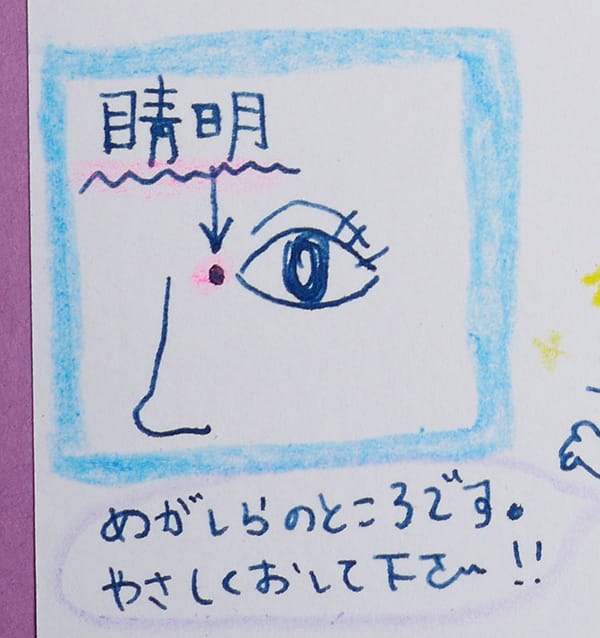 睛明
めがしらのところです。
やさしくおして下さい!!